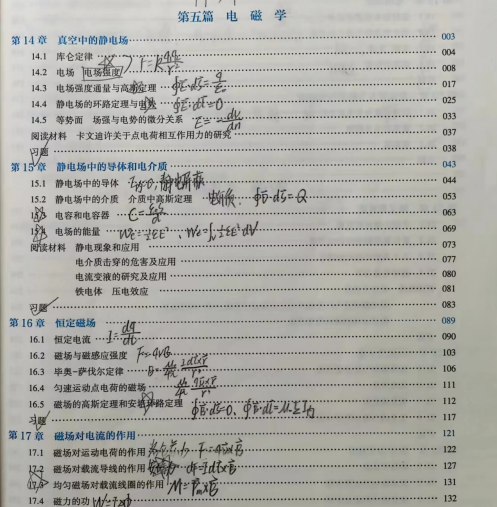 第五篇 电 磁 学
第14章 真空中的静电场 003
14.1 库仑定律 F=k 004
14.2 电场 电场强度 008
14.3 电场强度通量与高斯定理 017
14.4 静电场的环路定理与电势 025
14.5 等势面 场强与电势的微分关系 033
阅读材料 卡文迪许关于点电荷相互作用力的研究 037
习题 038
第15章 静电场中的导体和电介质 043
15.1 静电场中的导体 044
15.2 静电场中的介质 介质中高斯定理 053
15.3 电容和电容器 063
15.4 电场的能量 069
阅读材料 静电现象和应用 073
电介质击穿的危害及应用 077
电流变液的研究及应用 080
铁电体 压电效应 081
习题 083
第16章 恒定磁场 089
16.1 恒定电流 090
16.2 磁场与磁感应强度 F=qvB 103
16.3 毕奥-萨伐尔定律 106
16.4 匀速运动点电荷的磁场 111
16.5 磁场的高斯定理和安培环路定理 112
习题 117
第17章 磁场对电流的作用 121
17.1 磁场对运动电荷的作用 122
17.2 磁场对载流导线的作用 127
17.3 均匀磁场对载流线圈的作用 131
17.4 磁力的功 132